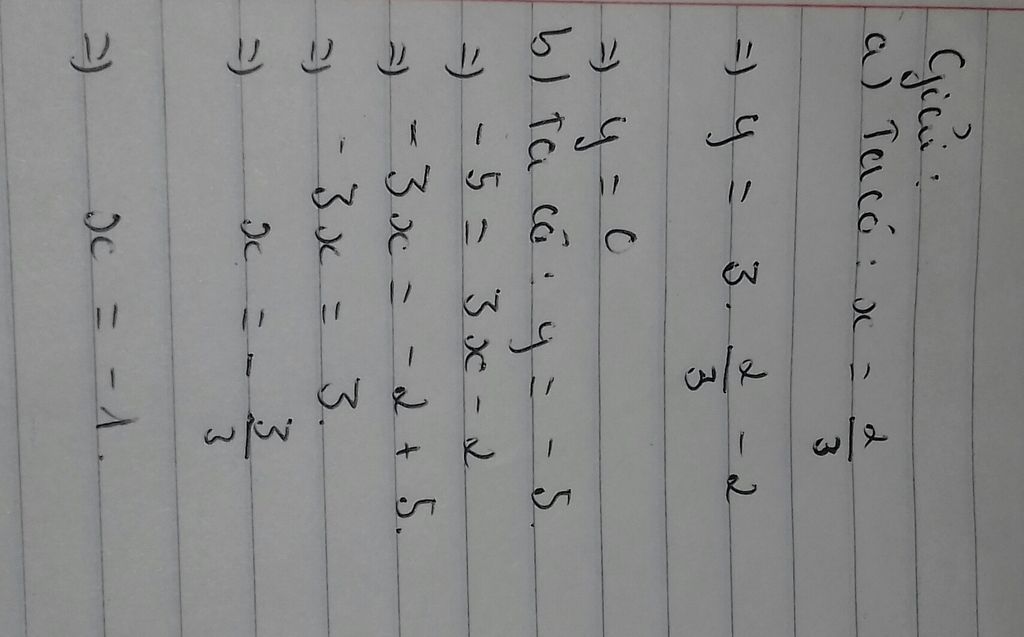 Giải:
a) Ta có: x = 2/3
=) y = 3. 2/3 - 2
=) y = 0
b) Ta có: y = - 5.
=) - 5 = 3x - 2
=) - 3x = - 2 + 5.
=) - 3x = 3.
=) x = - 3/3
=) x = - 1.